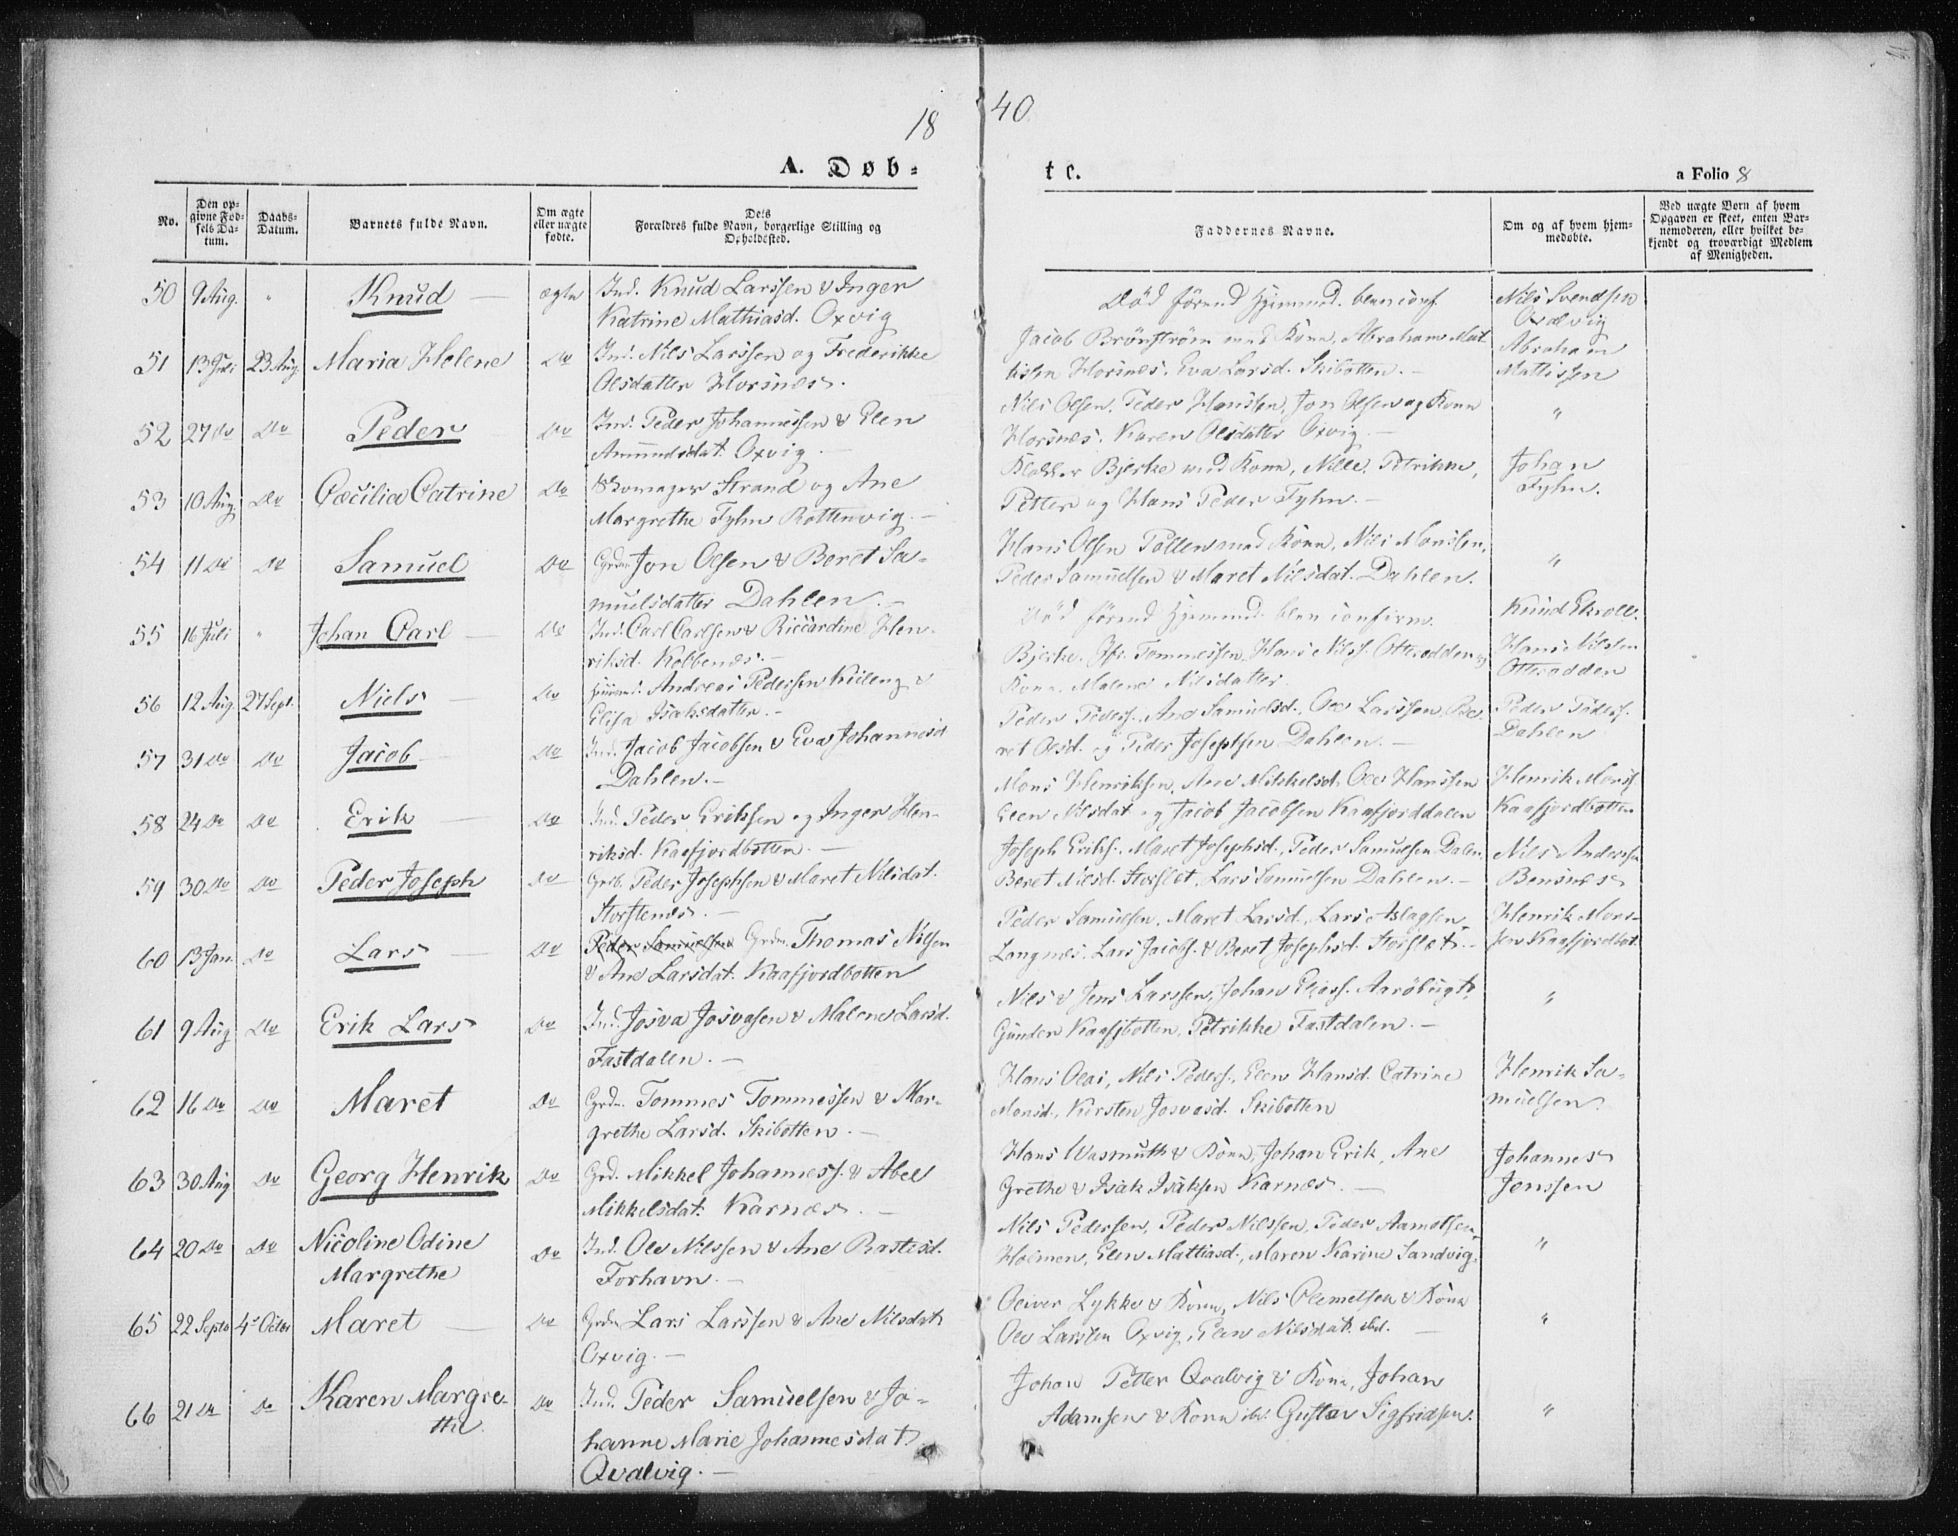 18
40
A. Døb-
te.
a Folio 8
No.
Den op-
givne Fød-
sels Da-
tum.
Daabs-
Datum.
Barnets fulde Navn.
Om ægte
eller uægte
fødte.
Dets
Forældres fulde Navn, borgerlige Stilling og
Opholdssted.
Faddernes Navne.
Om og af hvem hjem-
medøbte.
Ved uægte Børn af hvem
Opgaven er skeet, enten Bar-
nemoderen, eller hvilket be-
kjendt og troværdigt Medlem
af Menigheden.
50 9 Aug. " Knud ægte Ind. Knud Larssen & Inger
Katrine Mathiasd. Oxvig
Død førend Hjemmed. blev conf
Nils Svendsen
Oxvig
51 13 Juli 23 Aug. Maria Helene Do Ind. Nils Larssen og Frederikke
Olsdatter Horsnes.
Jacob Brønstrøm med Kone, Abraham Mat
tisen Horsnes. Eva Larsd. Skibotten.
Abraham
Mattissen
52 27 Do Do Peder Do Ind. Peder Johannessen & Elen
Amundsdat. Oxvig.
Nils Olsen, Peder Hanssen, Jon Olsen og Kone
Horsnes. Karen Olsdatter Oxvig.
"
53 10 Aug. Do Cæcilia Catrine Do Skomager Strand og Ane
Margrethe Fyhn Rottenvig.
Klokker Bjerke med Kone, Nille, Petrikke,
Petter og Hans Peder Fyhn.
Johan
Fyhn.
54 11 Do Do Samuel Do Grdm. Jon Olsen & Beret Sa-
muelsdatter Dahlen.
Hans Olsen Pollen med Kone, Nils Monssen,
Peder Samuelsen & Maret Nilsdat. Dahlen.
"
55 16 Juli " Johan Carl Do Ind. Carl Carlsen & Riccardine Hen-
riksd. Kolbenes.
Død førend Hjemmed. blev confirm.
Knud Ekroll.
56 12 Aug. 27 Sept. Niels Do Andreas Pedersen Kileng &
Elisa Isaksdatter.
Bjerke. Tommessen, Hans Nilss. Otteradden og
Kone. Malene Nilsdatter.
Hans Nilsen
Otteradden
57 31 Do Do Jacob Do Ind. Jacob Jacobsen & Eva Johannesd
Dahlen.
Peder Peders. Ane Samuelsd. Ole Larssen, Be-
ret Olsd. og Peder Josephsen Dahlen.
Peder Peders.
Dahlen
58 24 Do Do Erik Do Ind. Peder Eriksen og Inger Hen-
riksd. Kaafjordbotten.
Mons Henriksen, Ane Mikkelsd. Ole Hanssen
Elen Nilsdat. og Jacob Jacobsen Kaafjorddalen
Henrik Monss.
Kaafjordbotten
59 30 Do Do Peder Joseph Do Grdb. Peder Josephsen & Maret Nilsdat.
Storslenes.
Joseph Eriks. Maret Josephsd., Peder Samuelsen Dalen,
Beret Nilsd. Storslet, Lars Samuelsen Dahlen.
Nils Andersen
Bensnes
60 13 Jan. Do Lars Do Peder Samuelsen Grdm. Thomas Nilsen
& Ane Larsdat. Kaafjordbotten
Peder Samuelsen, Maret Larsd., Lars Aslagsen
Langnes. Lars Jacobs. & Beret Josephsd. Storslet.
Henrik Mons-
sen Kaafjordbot.
61 9 Aug Do Erik Lars Do Ind. Josva Josvasen & Malene Larsd.
Fastdalen.
Nils & Jens Larssen, Johan Eliass. Aarøbugt,
Gunder Kaafjbotten, Petrikke Fastdalen.
"
62 16 Do Do Maret Do Grdm. Tommes Tommessen & Mar-
grethe Larsd. Skibotten.
Hans Olai, Nils Peders., Elen Hansd. Catrine
Monsd., Kirsten Josvasd. Skibotten
Henrik Sa-
muelsen.
63 30 Aug Do Georg Henrik Do Grd. Mikkel Johanness. & Abel
Mikkelsdat. Karnæs.
Hans Wasmuth & Kone, Johan Erik, Ane
Grethe & Isak Isaksen Karnæs.
Johannes
Jenssen
64 20 Do Do Nicoline Odine
Margrethe Do Ind. Ole Nilssen & Ane Rastisd.
Forhavn.
Nils Pedersen, Peder Nilssen, Peder Arnolsen
Holmen, Elen Mattiasd., Maren Karine Sandvig.
"
65 22 Septb 4de Octbr Maret Do Grdm Lars Larssen & Ane Nilsdat.
Oxvig.
Oliver Lykke & Kone, Nils Clemetsen & Kone
Ole Larssen Oxvig, Elen Nilsdat. ibd.
"
66 21 Do Do Karen Margre-
the Do Ind. Peder Samuelsen & Jo-
hanne Marie Johannesdat.
Qvalvig.
Johan Petter Qvalvig & Kone, Johan
Adamsen & Kone ibd. Gustav Sigfridsen.
"